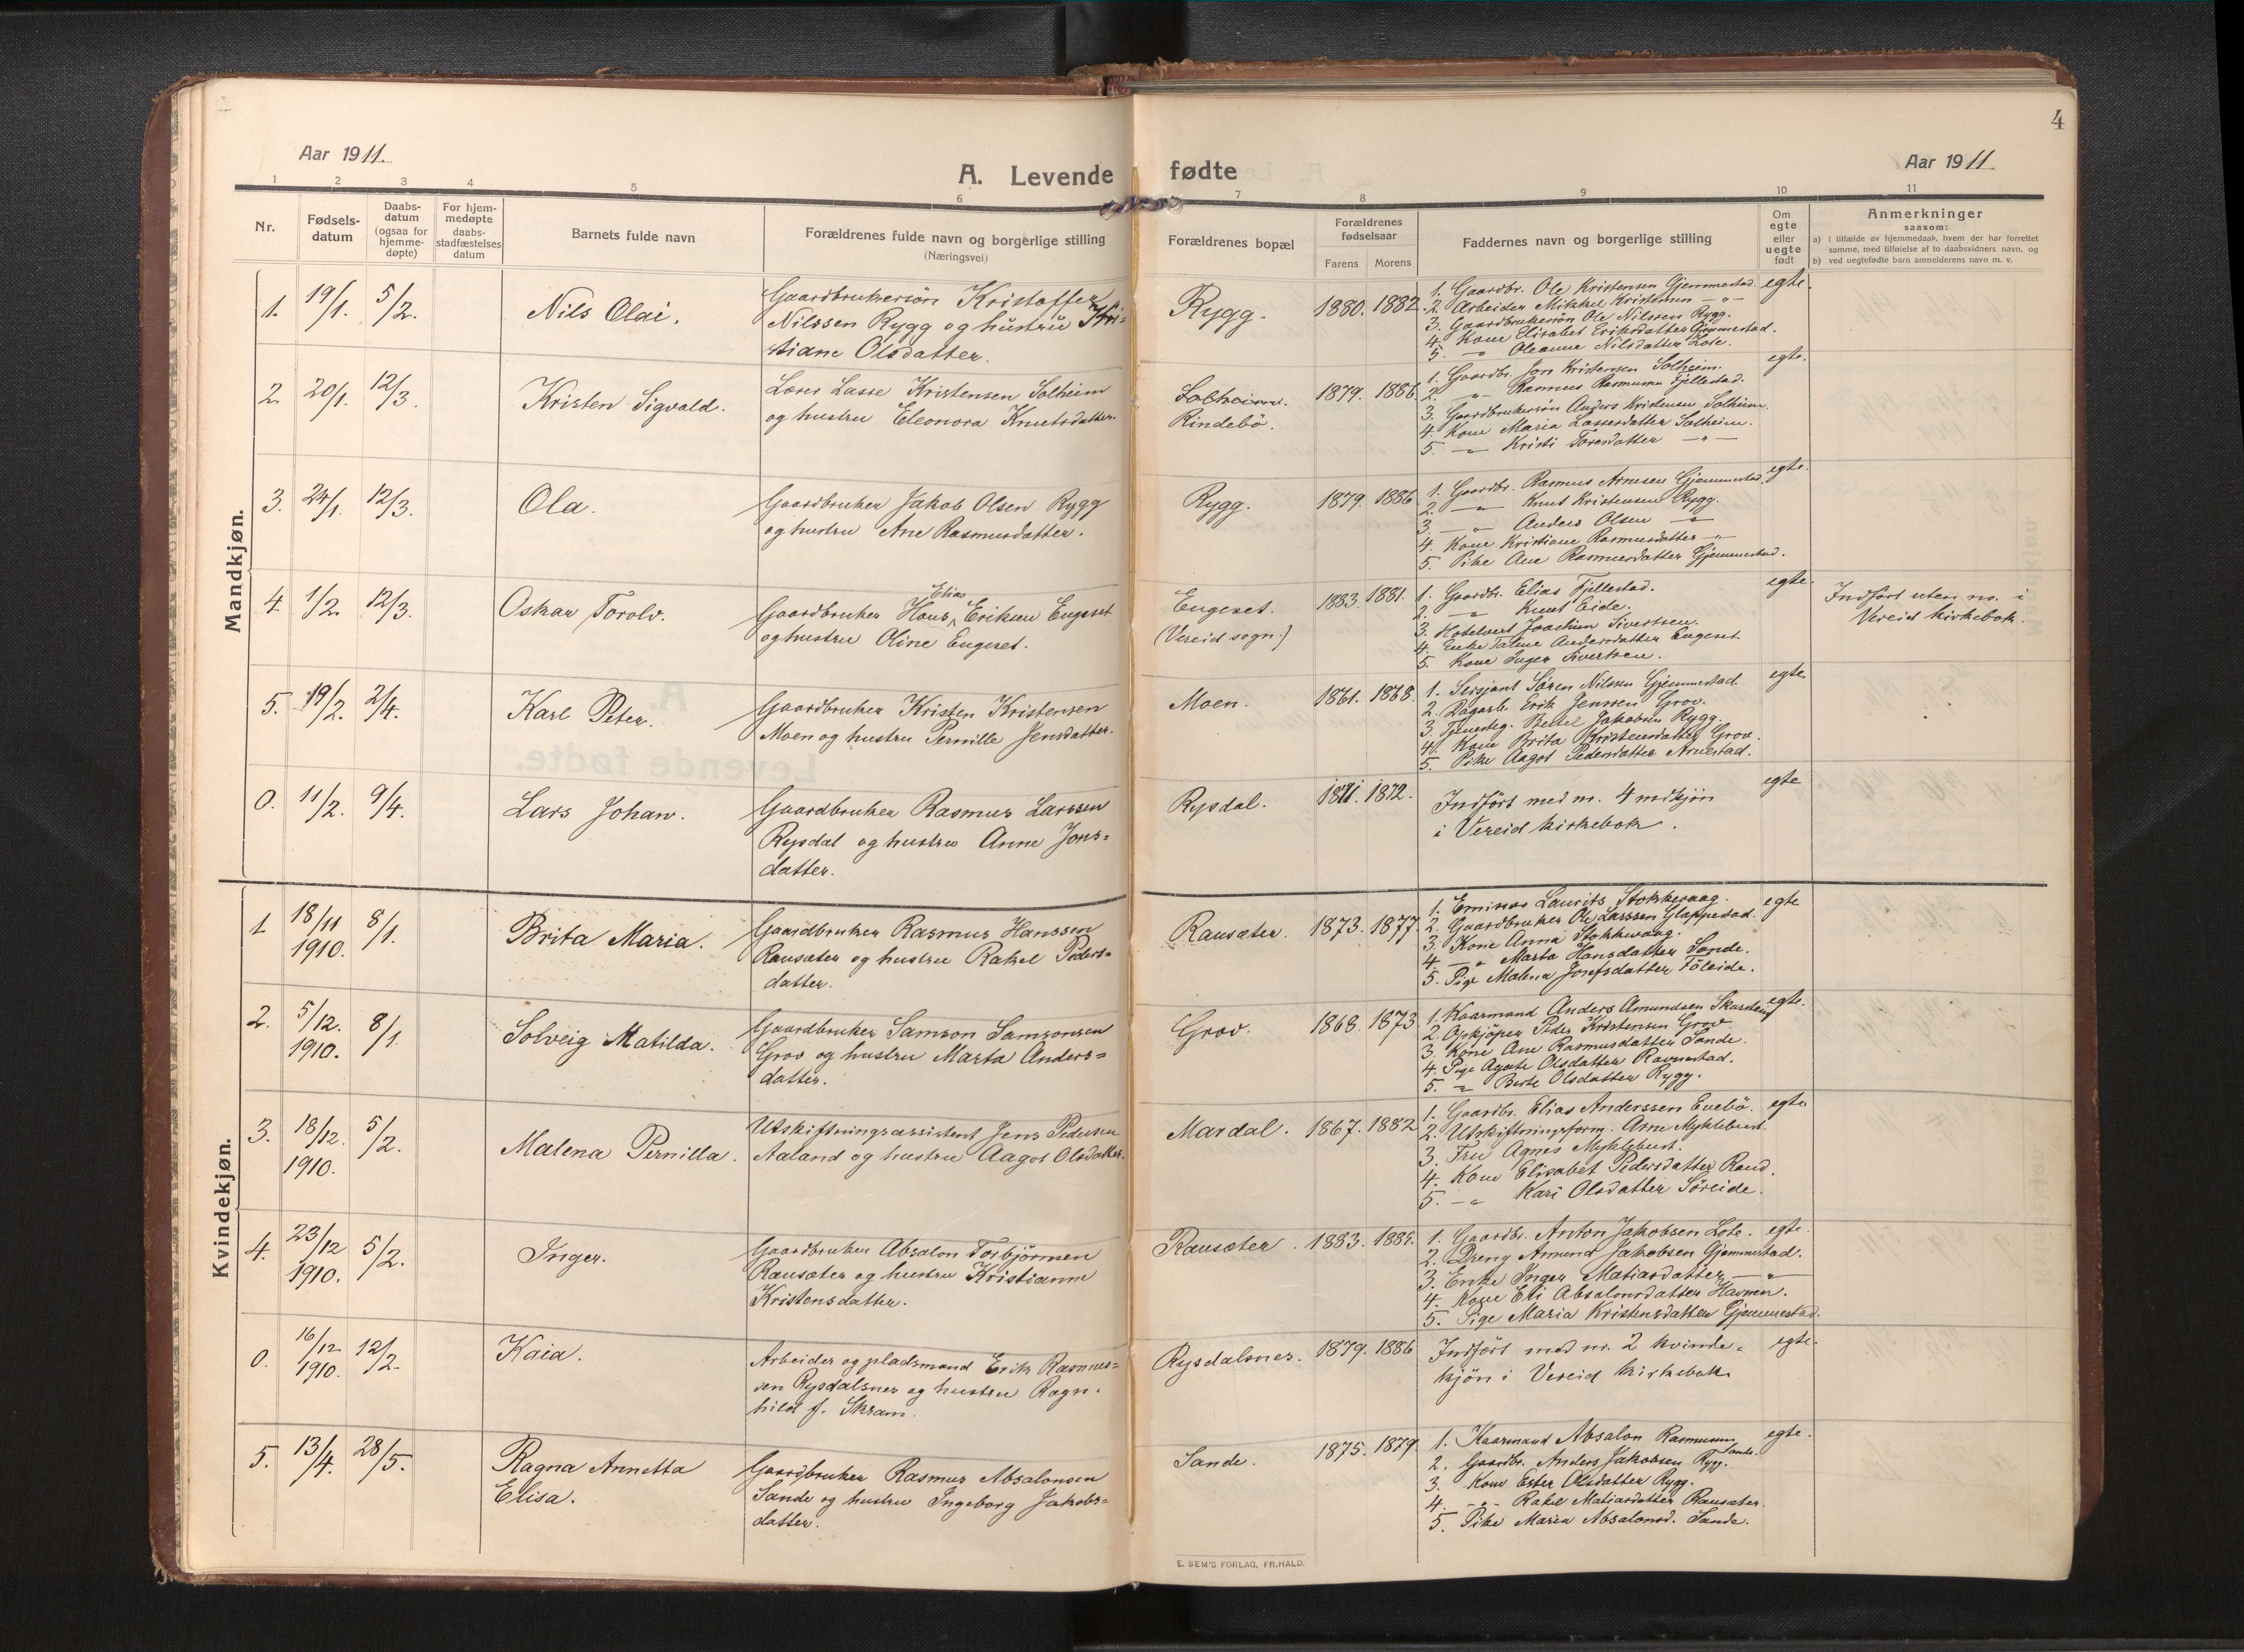 4
Aar 1911.
A. Levende fødte
Aar 1911
1 2 3 4 5 6 7 8 9 10 11
Nr.
Fødsels-
datum
Daabs-
datum
(ogsaa for
hjemme-
døpte)
For hjem-
medøpte
daabs-
stadfæstelses
datum
Barnets fulde navn
Forældrenes fulde navn og borgerlige stilling
(Næringsvei)
Forældrenes bopæl
Forældrenes
fødselsaar
Farens Morens
Faddernes navn og borgerlige stilling
Om
egte
eller
uegte
født
Anmerkninger
saasom:
a) i tilfælde av hjemmedaab, hvem der har forrettet
samme, med tilføielse af to daabsvidners navn, og
b) ved uegtefødte barn anmelderens navn m. v.
Mandkjøn.
1. 19/1. 5/2. Nils Olai.
Gaardbrukersön Kristoffer
Nilssen Rygg og hustru Kri-
stiane Olsdatter.
Rygg. 1880. 1882.
1. Gaardbr. Ole Kristensen Gjemmestad.
2. Arbeider Mikkel Kristensen — " —
3. Gaardbrukersön Ole Nilssen Rygg.
4. Kone Elisabet Eriksdatter Gjemmestad.
5. — " Oleanne Nilsdatter Lote.
egte.
2. 20/1. 12/3. Kristen Sigvald.
Lærer Lasse Kristensen Solheim
og hustru Eleonora Knutsdatter.
Solheim.
Rindebö.
1879. 1886.
1. Gaardbr. Jon Kristensen Solheim.
2. — " Rasmus Rasmussen Fjellestad.
3. Gaardbrukersön Anders Kristensen Solheim.
4. Kone Maria Lassesdatter Solheim.
5. — " Kristi Toresdatter — " —
egte.
3. 24/1. 12/3. Ola.
Gaardbruker Jakob Olsen Rygg
og hustru Ane Rasmusdatter.
Rygg. 1879. 1886.
1. Gaardbr. Rasmus Arnesen Gjemmestad.
2. — " Knut Kristensen Rygg.
3. — " Anders Olsen — "
4. Kone Kristiane Rasmusdatter — "
5. Pike Ane Rasmusdatter Gjemmestad.
egte.
4. 1/2. 12/3. Oskar Torolv.
Elias
Gaardbruker Hans Eriksen Engeset
og hustru Oline Engeset.
Engeset.
(Vereid sogn.)
1883. 1881.
1. Gaardbr. Elias Fjellestad.
2. — " Knut Eide.
3. Hotelvert Joachim Sivertsen.
4. Enke Andersdatter Engeset.
5. Kone Inger Sivertsen.
egte.
Indfört uten no. i
Vereid kirkebok.
5. 19/2. 2/4. Karl Peter.
Gaardbruker Kristen Kristensen
Moen og hustru Pernille Jensdatter.
Moen. 1861. 1868.
1. Sersjant Sören Nilssen Gjemmestad.
2. Dagarb. Erik Jenssen Grov.
3. Tjeneste. Bertel Jakobsen Rygg.
4. Kone Brita Kristensdatter Grov.
5. Pike Aagot Pedersdatter Arnestad.
egte.
0. 11/2. 9/4. Lars Johan.
Gaardbruker Rasmus Larssen
Rysdal og hustru Anne Jons=
datter.
Rysdal. 1872.
Indfört med nr. 4 mdkjön
i Vereid kirkebok.
egte
Kvindekjøn.
1 18/11
1910. 8/1. Brita Maria.
Gaardbruker Rasmus Hanssen
Rausæter og hustru Rakel Peders=
datter.
Rausæter. 1873. 1877.
1. Laurits Stokkevaag.
2. Gaardbruker Ole Larssen Glappestad.
3. Kone Anna Stokkevaag.
4. — " Marta Hansdatter Sande.
5. Pige Malena Josefsdatter Föleide.
egte
2. 5/12.
1910. 8/1. Solveig Matilda.
Gaardbruker Samson Samsonsen
Grov og hustru Marta Anders=
datter.
Grov. 1868. 1873
1. Kaarmand Anders Amundsen Skarstein
2. Opkjöper Peder Kristensen Grov
3. Kone Ane Rasmusdatter Sande.
4. Pige Agate Olsdatter Ravnestad.
5. — " Berte Olsdatter Rygg.
egte.
3. 18/12.
1910. 5/2. Malena Pernilla.
Utskiftningsassistent Jens Pedersen
Aaland og hustru Aagot Olsdatter.
Mardal. 1867. 1882
1. Gaardbr. Elias Anderssen Evebö.
2. Utskiftningsform. Arne Myklebust.
3. Fru Agnes Myklebust.
4. Kone Elisabet Pedersdatter Rand.
5. — " Kari Olsdatter Söreide.
egte
4. 23/12
1910. 5/2. Inger.
Gaardbruker Absalon Torbjörnsen
Rausæter og hustru Kristianne
Kristensdatter.
Rausæter. 1883. 1885.
1. Gaardbr. Anton Jakobsen Lote.
2. Dreng Amund Jakobsen Gjemmestad.
3. Enke Inger Matiasdatter — " —
4. Kone Eli Absalonsdatter Havnen.
5. Pige Maria Kristensdatter Gjemmestad.
egte.
0. 16/12
1910. 12/2. Kaia.
Arbeider og pladsmand Erik Rasmus=
sen Rysdalsnes og hustru Ragn-
hild f. Skram.
Rysdalsnes. 1879. 1886
Indfört med nr. 2 kvinde-
kjön i Vereid kirkebok.
egte.
5. 13/4. 28/5. Ragna Annetta
Elisa.
Gaardbruker Rasmus Absalonsen
Sande og hustru Ingeborg Jakobs=
datter.
Sande. 1875. 1879.
1. Kaarmand Absalon Rasmussen
Sande.
2. Gaardbr. Anders Jakobsen Rygg.
3. Kone Ester Olsdatter Rygg.
4. — " — Rakel Matiasdatter Rausæter.
5. Pike Maria Absalonsd. Sande.
egte.
E. SEM'S FORLAG, FR.HALD.